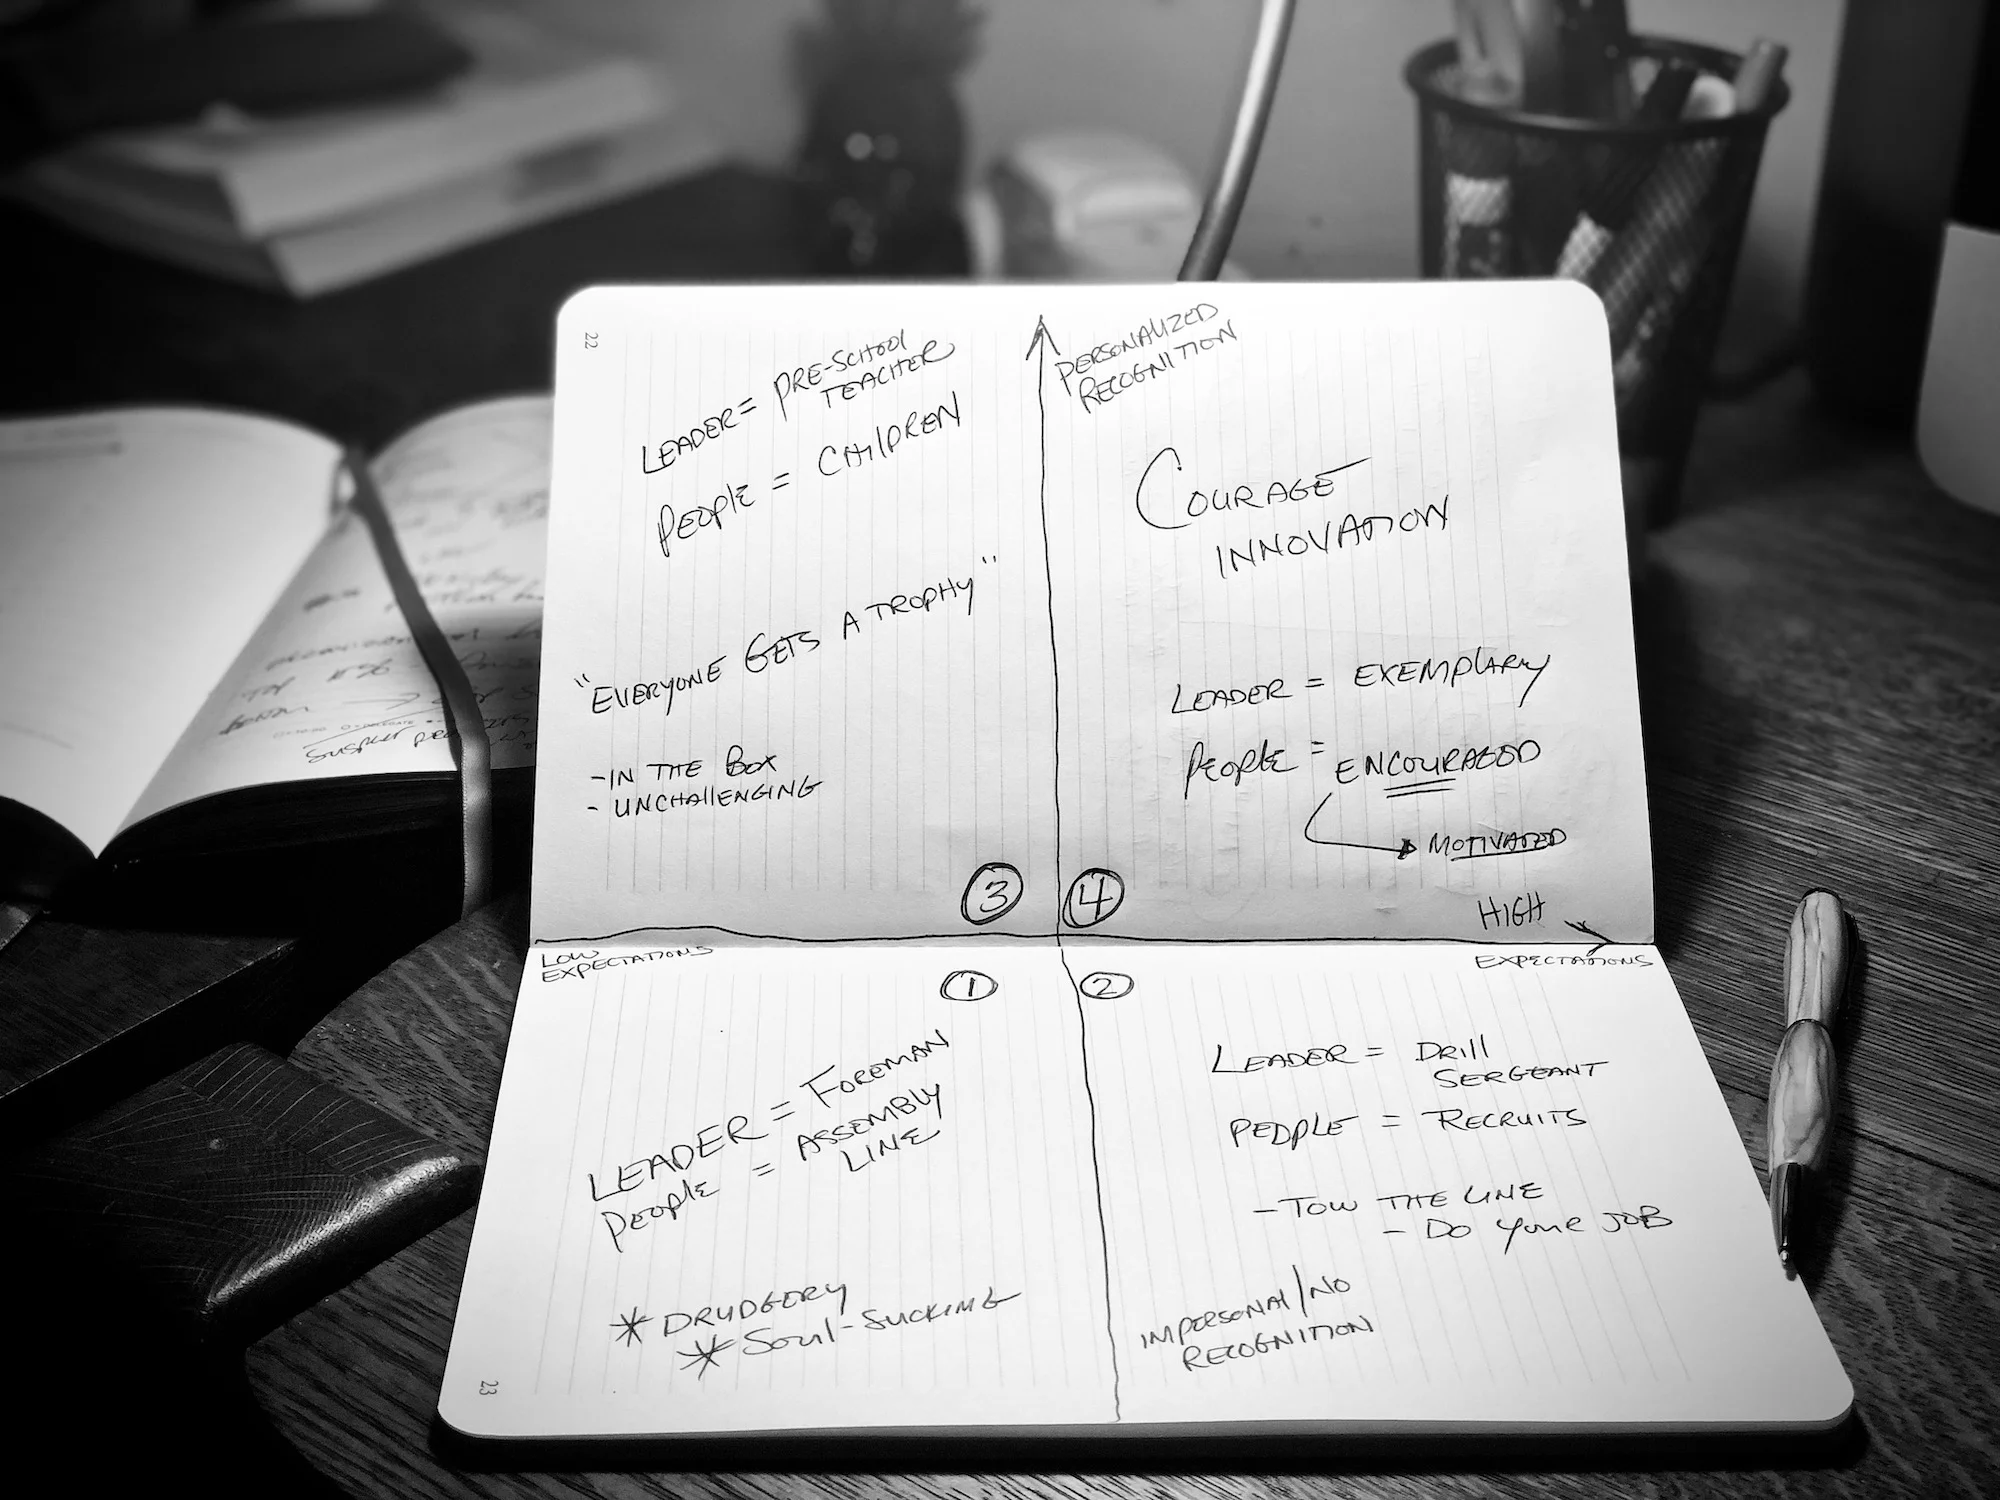 22
LEADER = PRE-SCHOOL
TEACHER
PEOPLE = CHILDREN
"EVERYONE GETS A TROPHY"
- IN THE BOX
- UNCHALLENGING
3
PERSONALIZED
RECOGNITION
COURAGE
INNOVATION
LEADER = EXEMPLARY
PEOPLE = ENCOURAGED
MOTIVATED
4
HIGH
EXPECTATIONS
LOW
EXPECTATIONS
1
LEADER = FOREMAN
PEOPLE = ASSEMBLY
LINE
* DRUDGERY
* SOUL-SUCKING
23
2
LEADER = DRILL
SERGEANT
PEOPLE = RECRUITS
- TOW THE LINE
- DO YOUR JOB
IMPERSONAL/NO
RECOGNITION